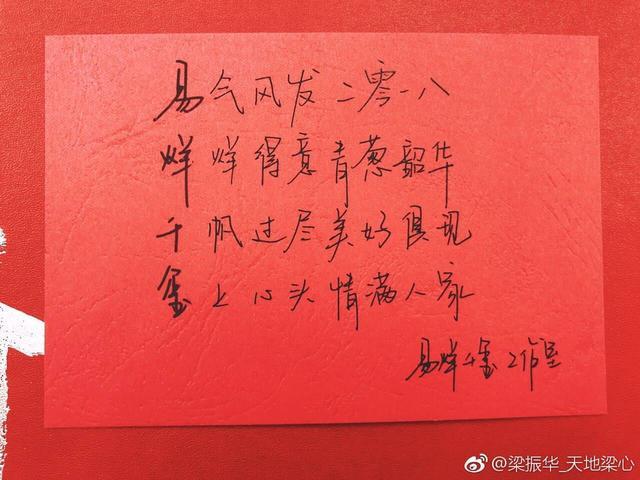 易气风发二零一八
烊烊得意青葱韶华
千帆过尽美好俱现
玺上心头情满人家
易烊千玺工作室
@梁振华_天地梁心